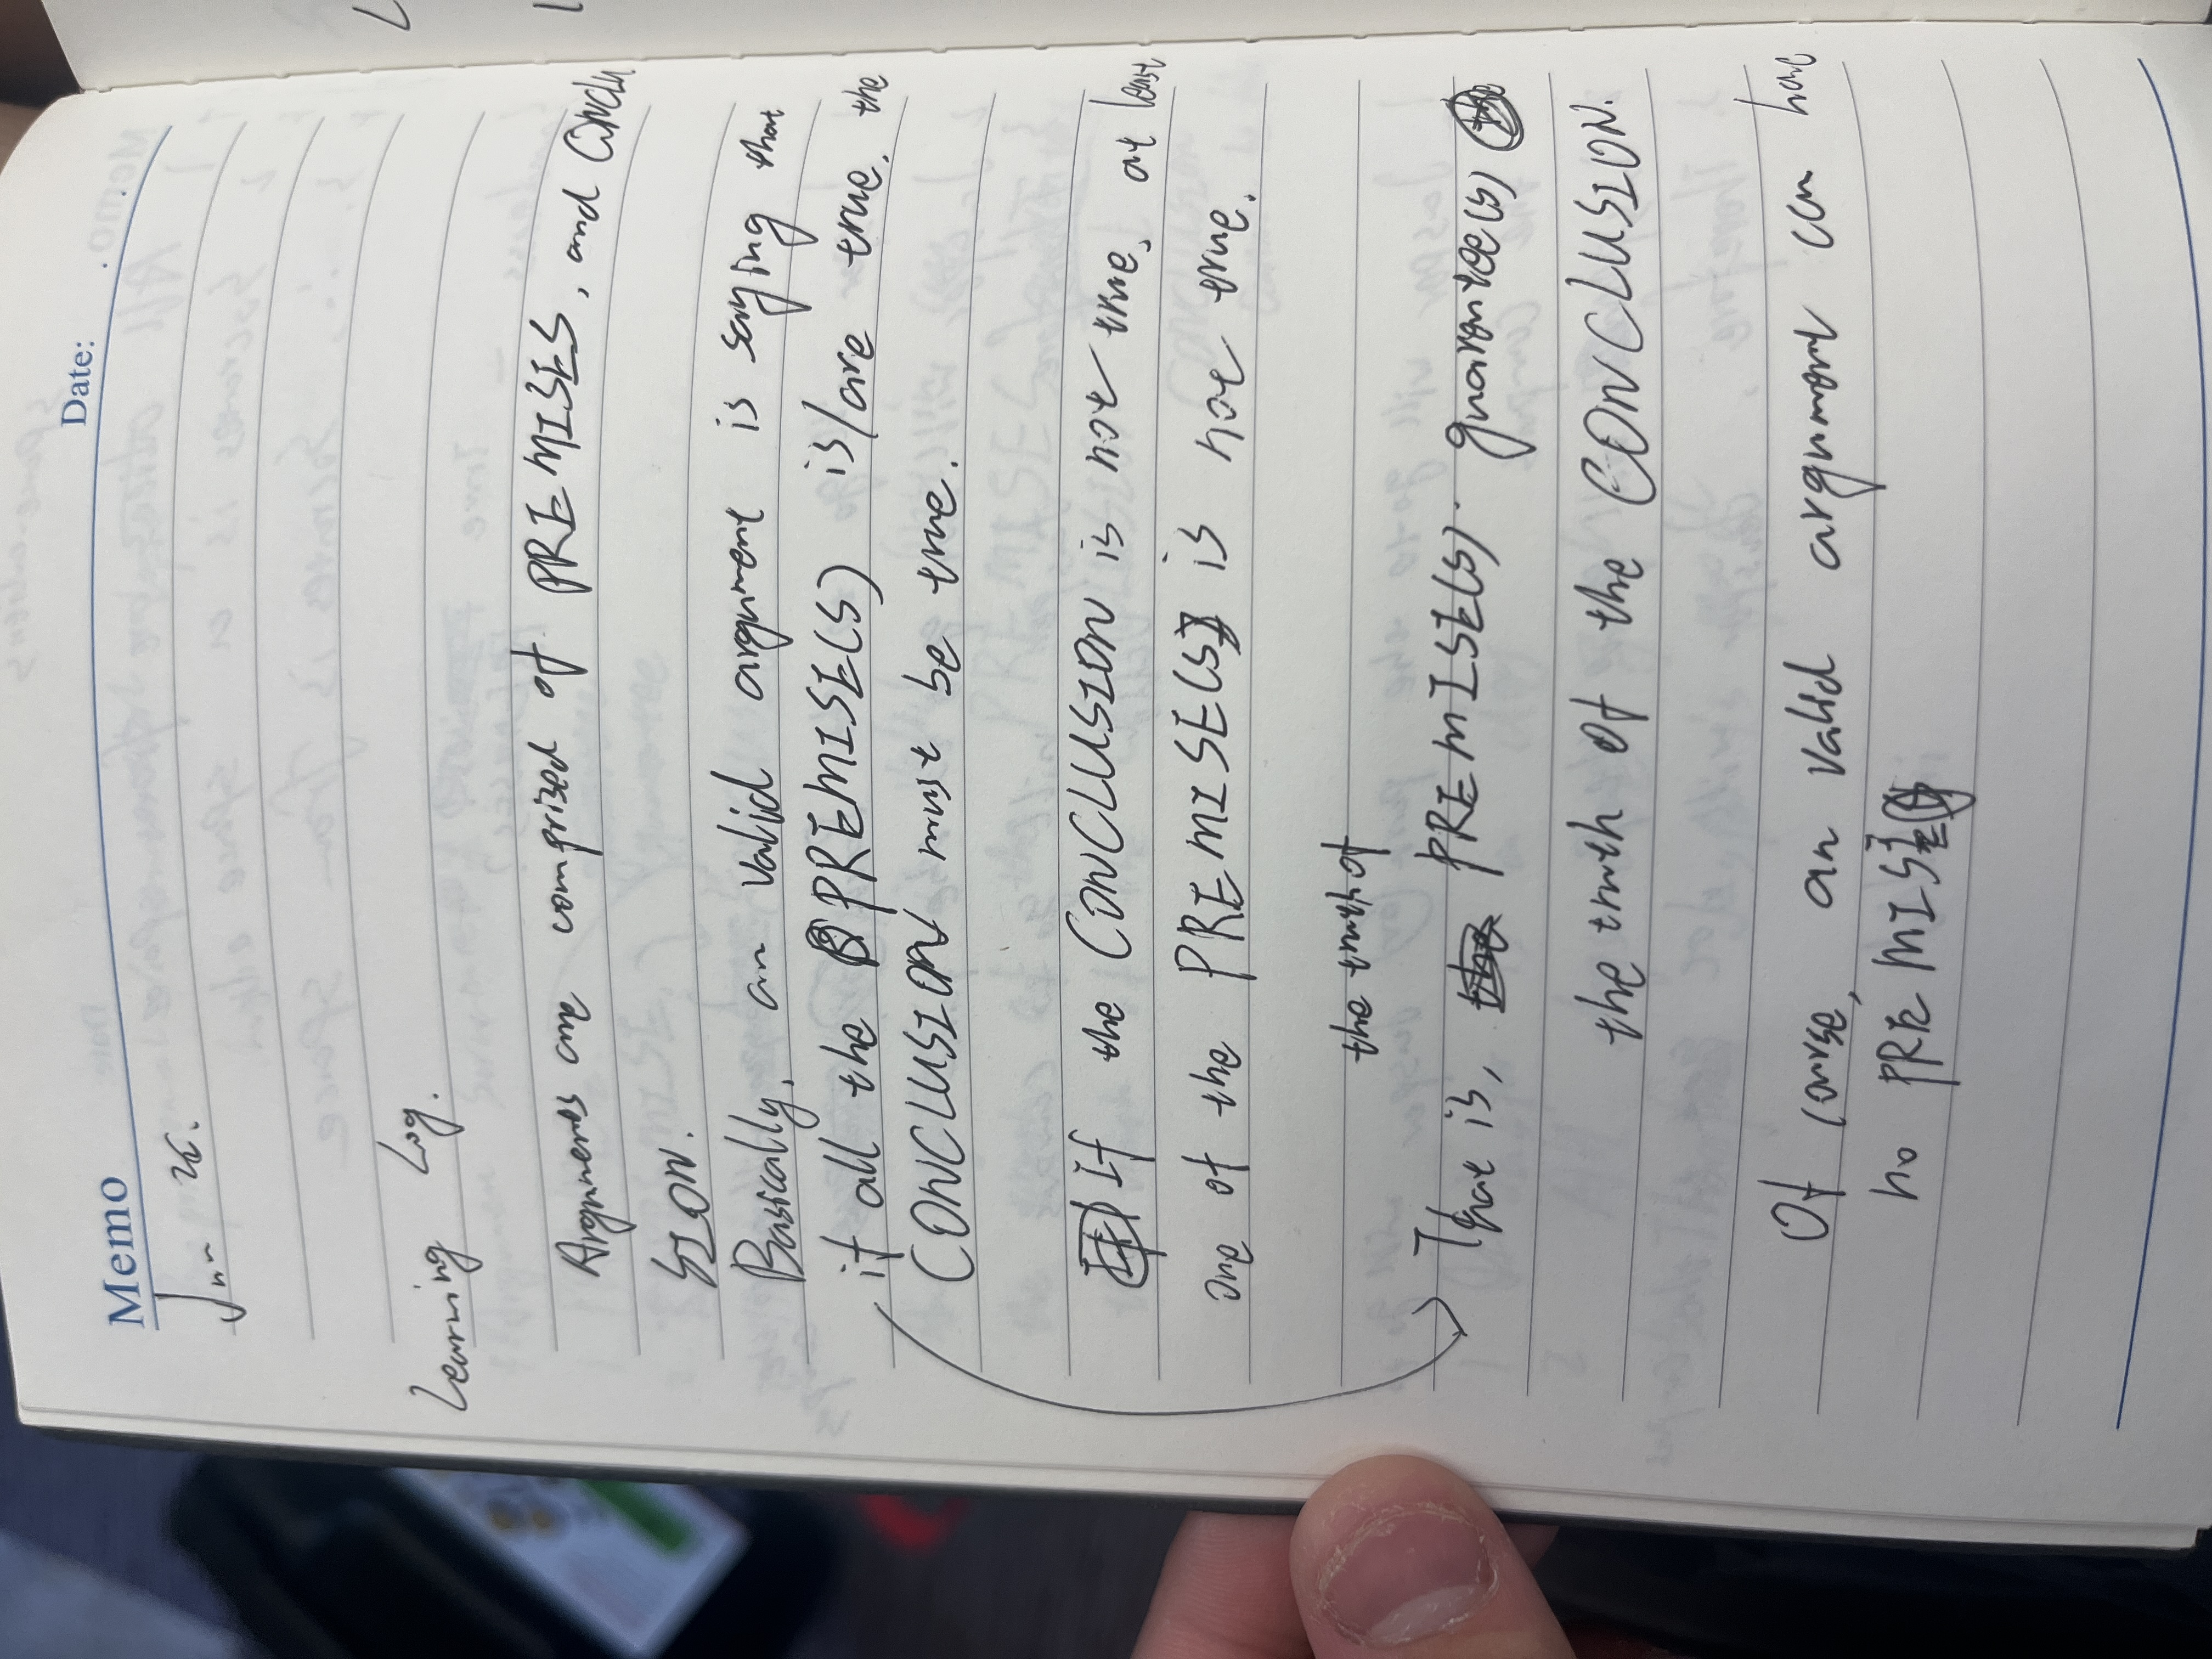 Memo
Date:
Jun 26.
Learning Log.
Arguments are comprised of PREMISES, and CONCLU
SION.
Basically, an valid argument is saying that
if all the PREMISE(S) is/are true, the
CONCLUSION must be true.
If the CONCLUSION is not true, at least
one of the PREMISE(S) is not true.
the truth of
That is, PREMISE(S) guarantee(s)
the truth of the CONCLUSION.
Of course, an valid argument can have
no PREMISE